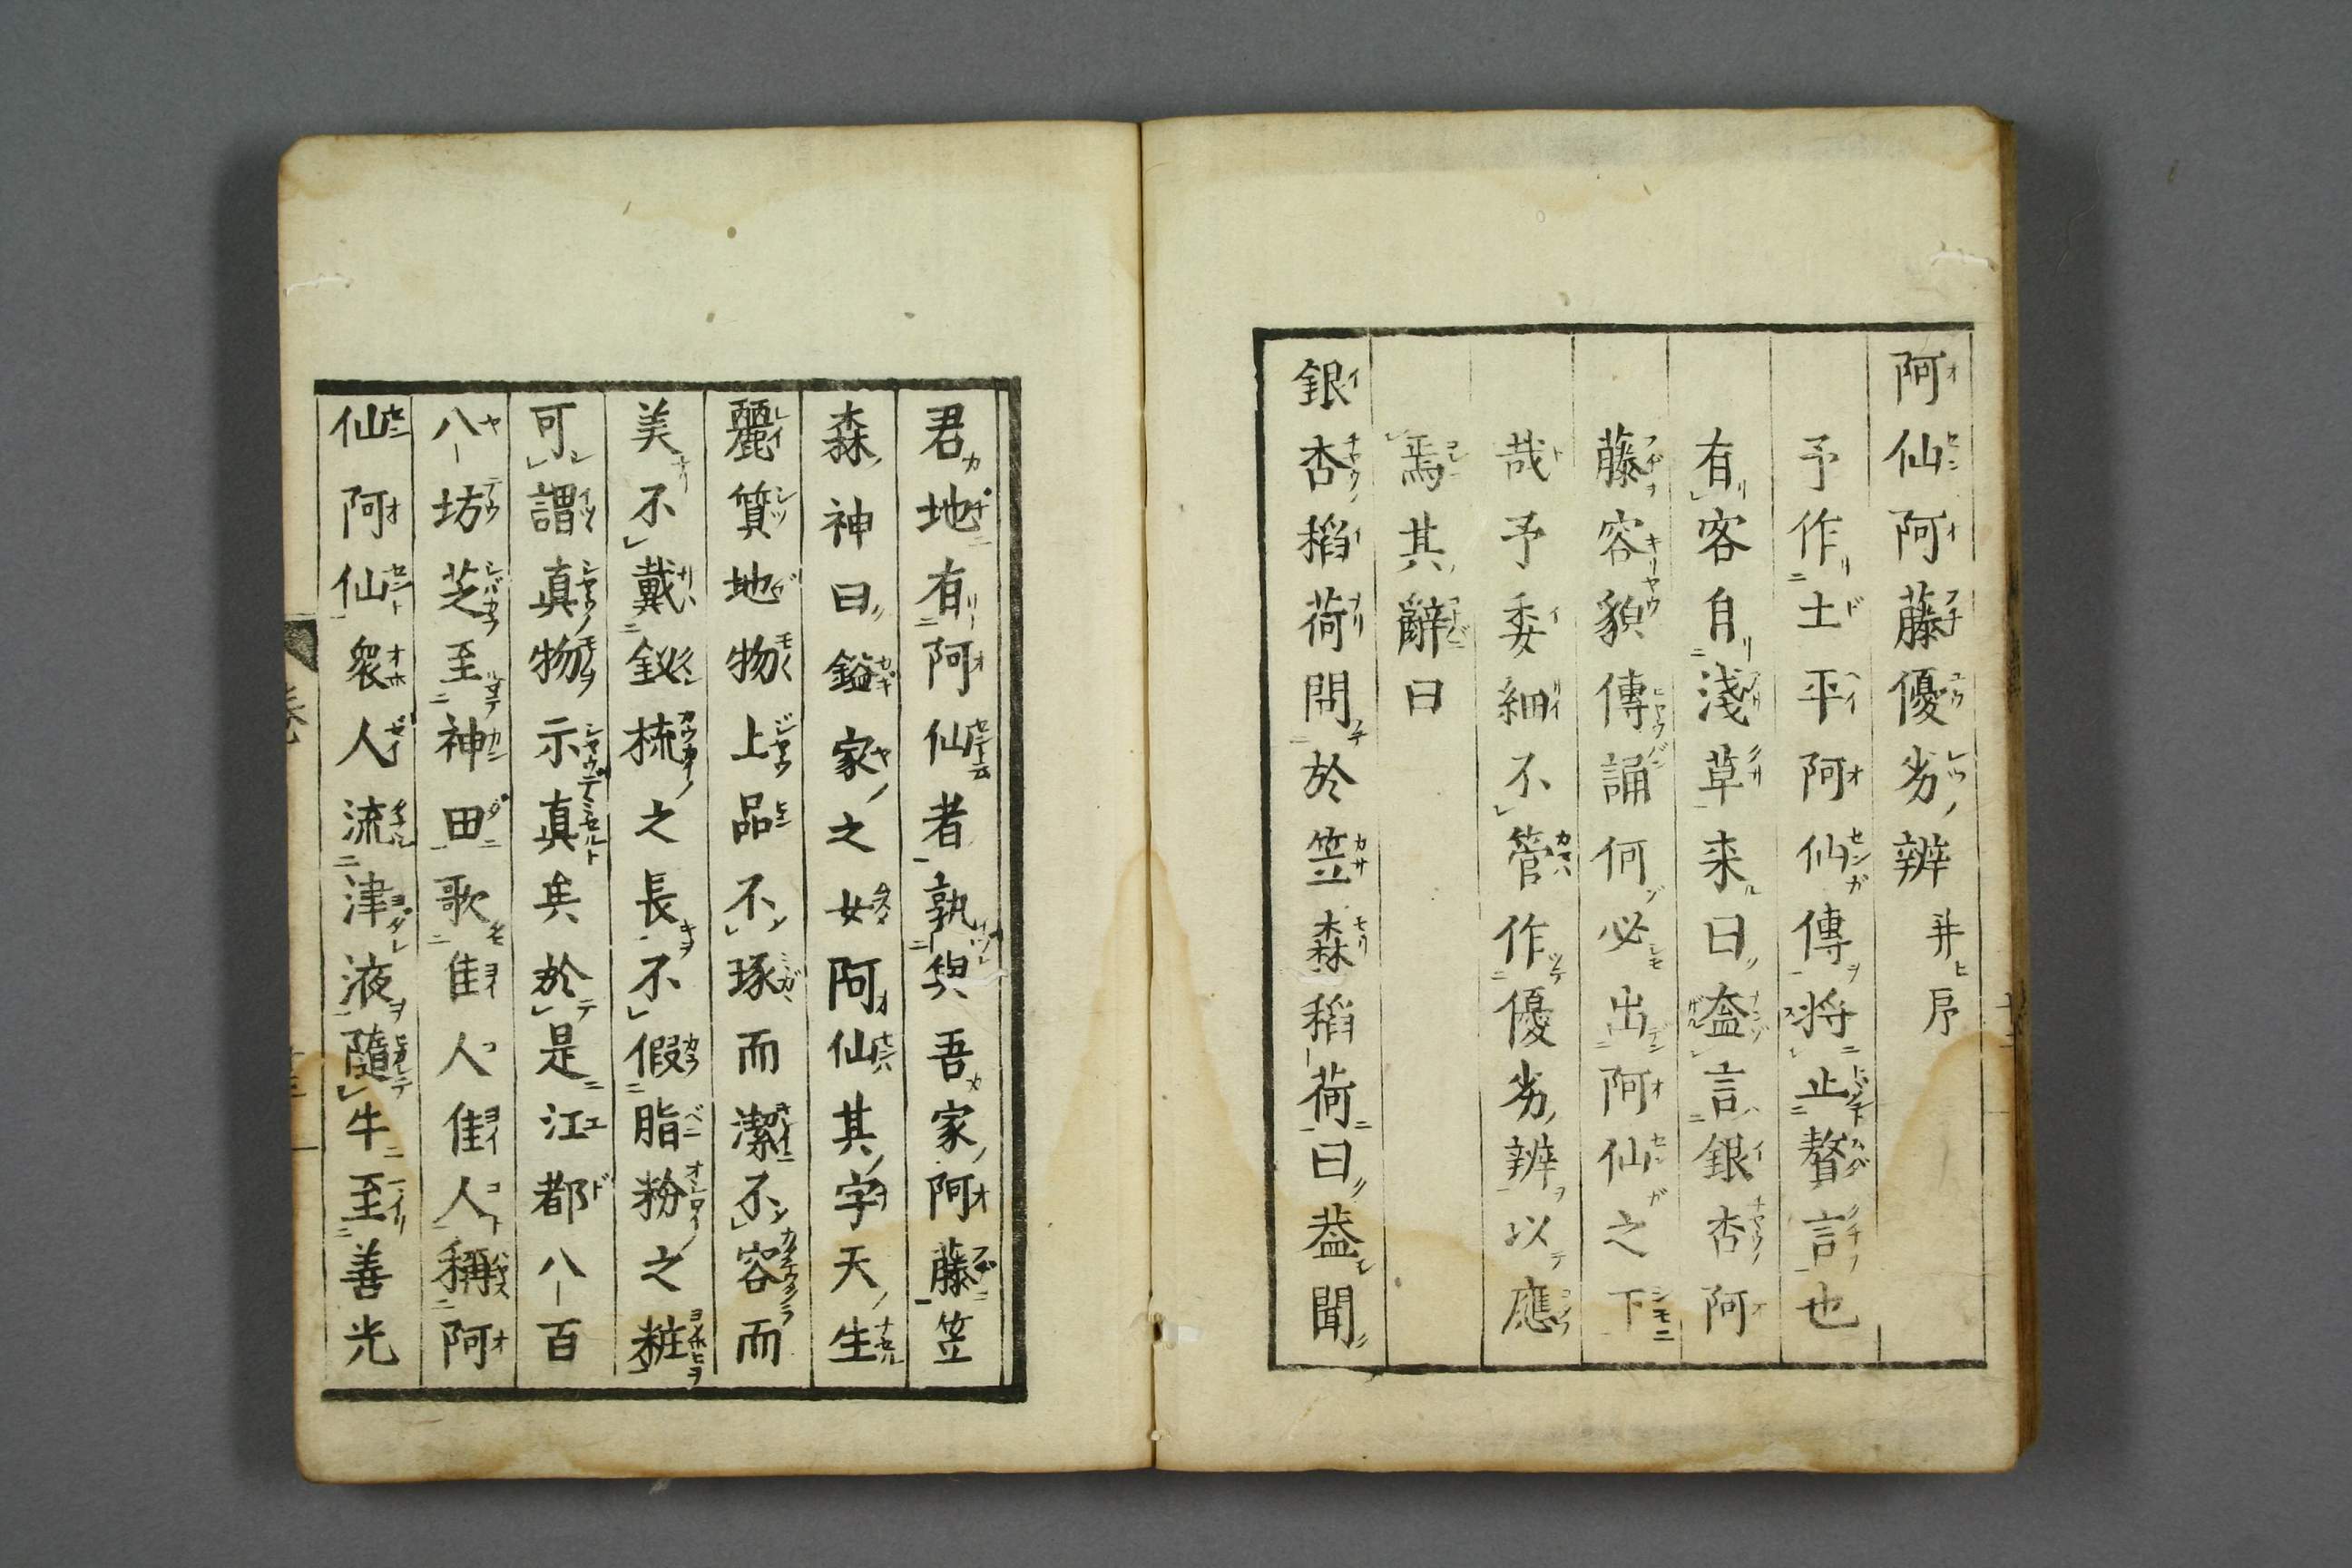 阿仙阿藤優劣辨 并序
予作土平阿仙傳將止贅言也
有客自淺草来曰盍言銀杏阿
藤容貌傳誦何必出阿仙之下
哉予委細不管作優劣辨以應
焉其辭曰
銀杏稻荷問於笠森稻荷曰葢聞
君地有阿仙者孰與吾家阿藤笠
森神曰鎰家之女阿仙其字天生
麗質地物上品不琢而潔不容而
美不戴釵梳之長不假脂粉之粧
可謂真物示真矣於是江都八百
八坊芝至神田歌佳人佳人稱阿
仙阿仙衆人流津液隨牛至善光